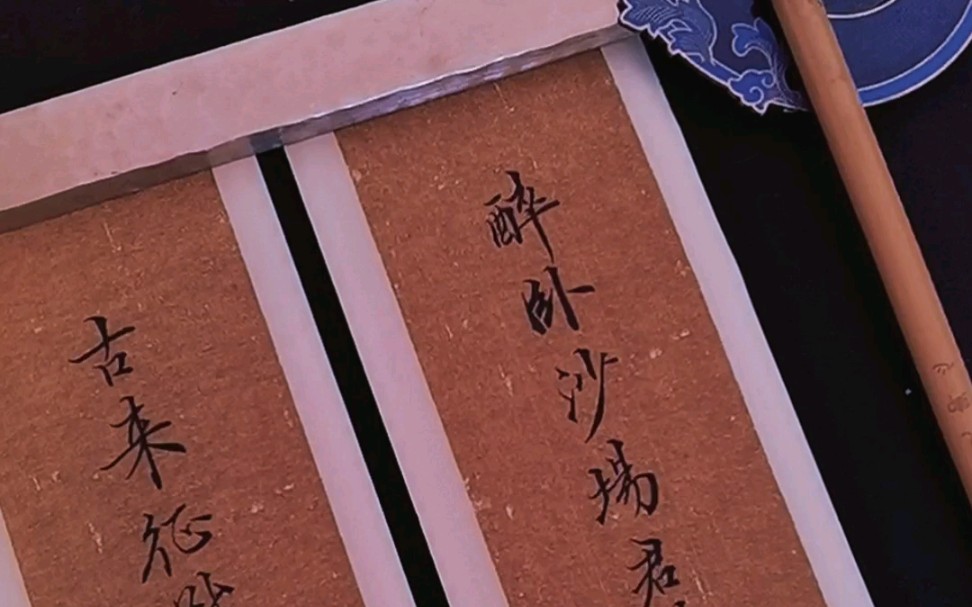 醉卧沙場君
古来征